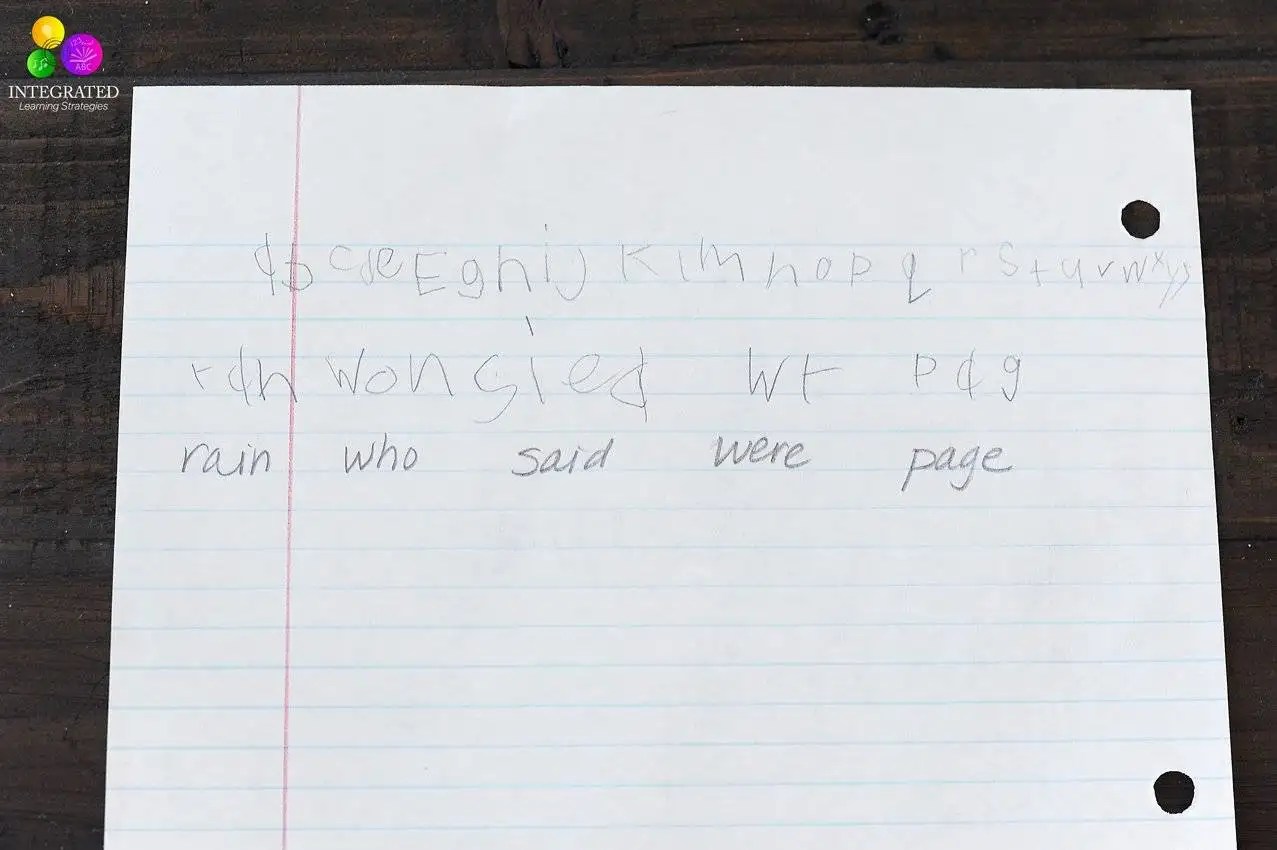 INTEGRATED
Learning Strategies
a b c d e E g h i j K l m n o p q r s t u v w x y
ran won sied wr pag
rain who said were page